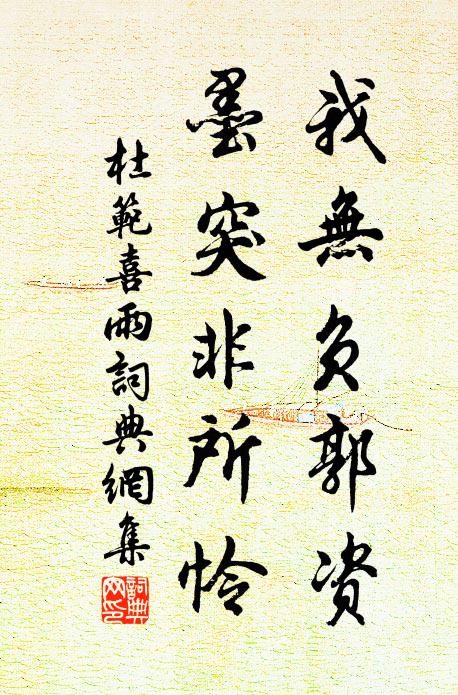 我無负郭资
墨突非所怜
杜範喜雨詞典網集
詞典
网印